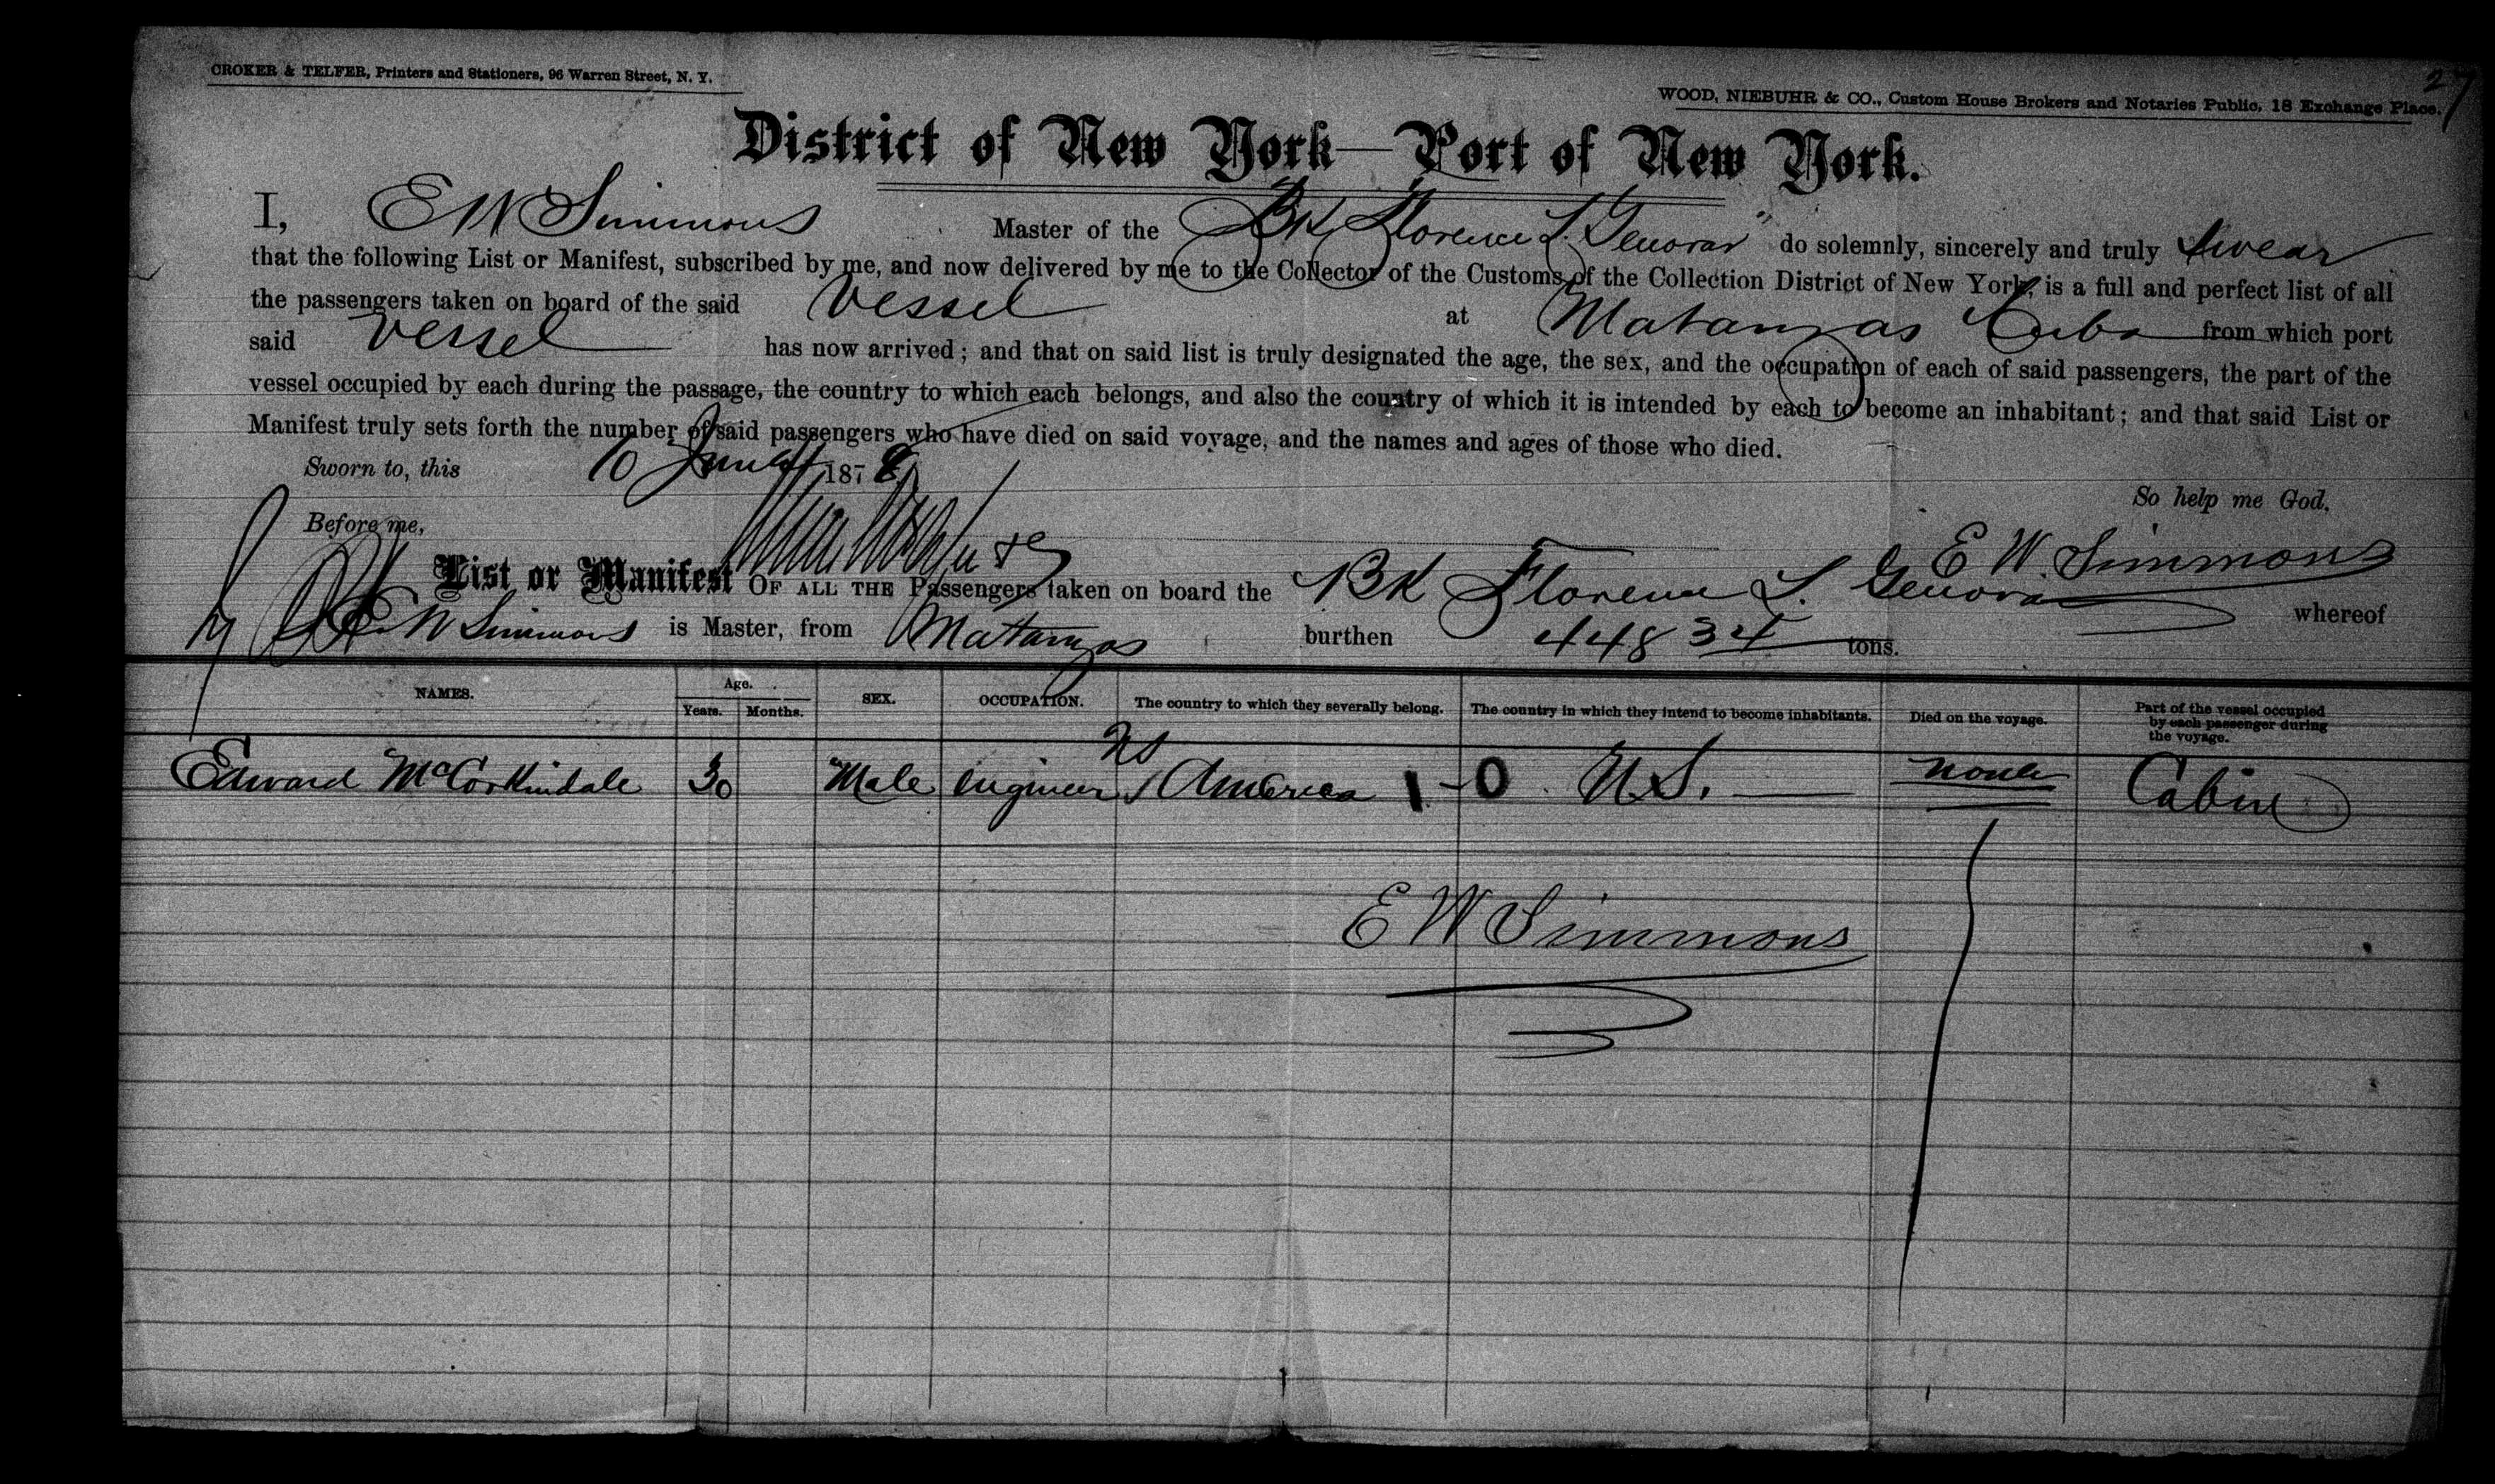 27
CROKER & TELFER, Printers and Stationers, 96 Warren Street, N. Y.
WOOD, NIEBUHR & CO., Custom House Brokers and Notaries Public, 18 Exchange Place.
District of New York—Port of New York.
I, E W Simmons Master of the "Bk Florence L. Genovar" do solemnly, sincerely and truly swear
that the following List or Manifest, subscribed by me, and now delivered by me to the Collector of the Customs of the Collection District of New York, is a full and perfect list of all
the passengers taken on board of the said Vessel at Matanzas Cuba from which port
said Vessel has now arrived; and that on said list is truly designated the age, the sex, and the occupation of each of said passengers, the part of the
vessel occupied by each during the passage, the country to which each belongs, and also the country of which it is intended by each to become an inhabitant; and that said List or
Manifest truly sets forth the number of said passengers who have died on said voyage, and the names and ages of those who died.
Sworn to, this 10 June 1878
So help me God.
Before me,
E W. Simmons
List or Manifest OF ALL THE Passengers taken on board the Bk Florence L. Genovar whereof
E W Simmons is Master, from Matanzas burthen 448 34 tons.
NAMES. Age. Years. Months. SEX. OCCUPATION. The country to which they severally belong. The country in which they intend to become inhabitants. Died on the voyage. Part of the vessel occupied by each passenger during the voyage.
Edward McCorkindale 30 Male Engineer US America 1 - 0 U.S. None Cabin
E W Simmons